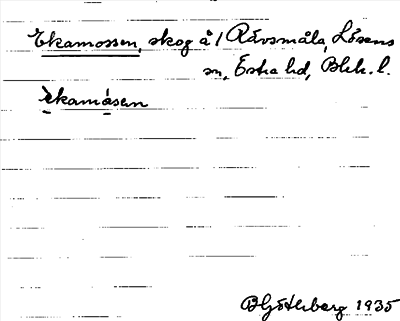 Ekamossen, skog å 1 Rävsmåla, Lösens
sn, Östra hd, Blek. l.
èkamòsen
B Götlberg 1935